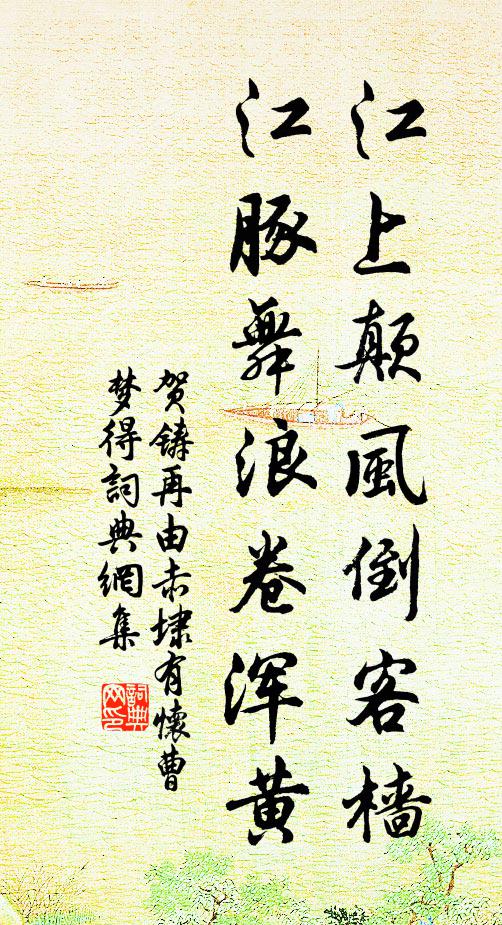 江上颠風倒客樯
江豚舞浪卷浑黄
贺铸再由赤埭有懷曹
梦得詞典網集
詞典网印